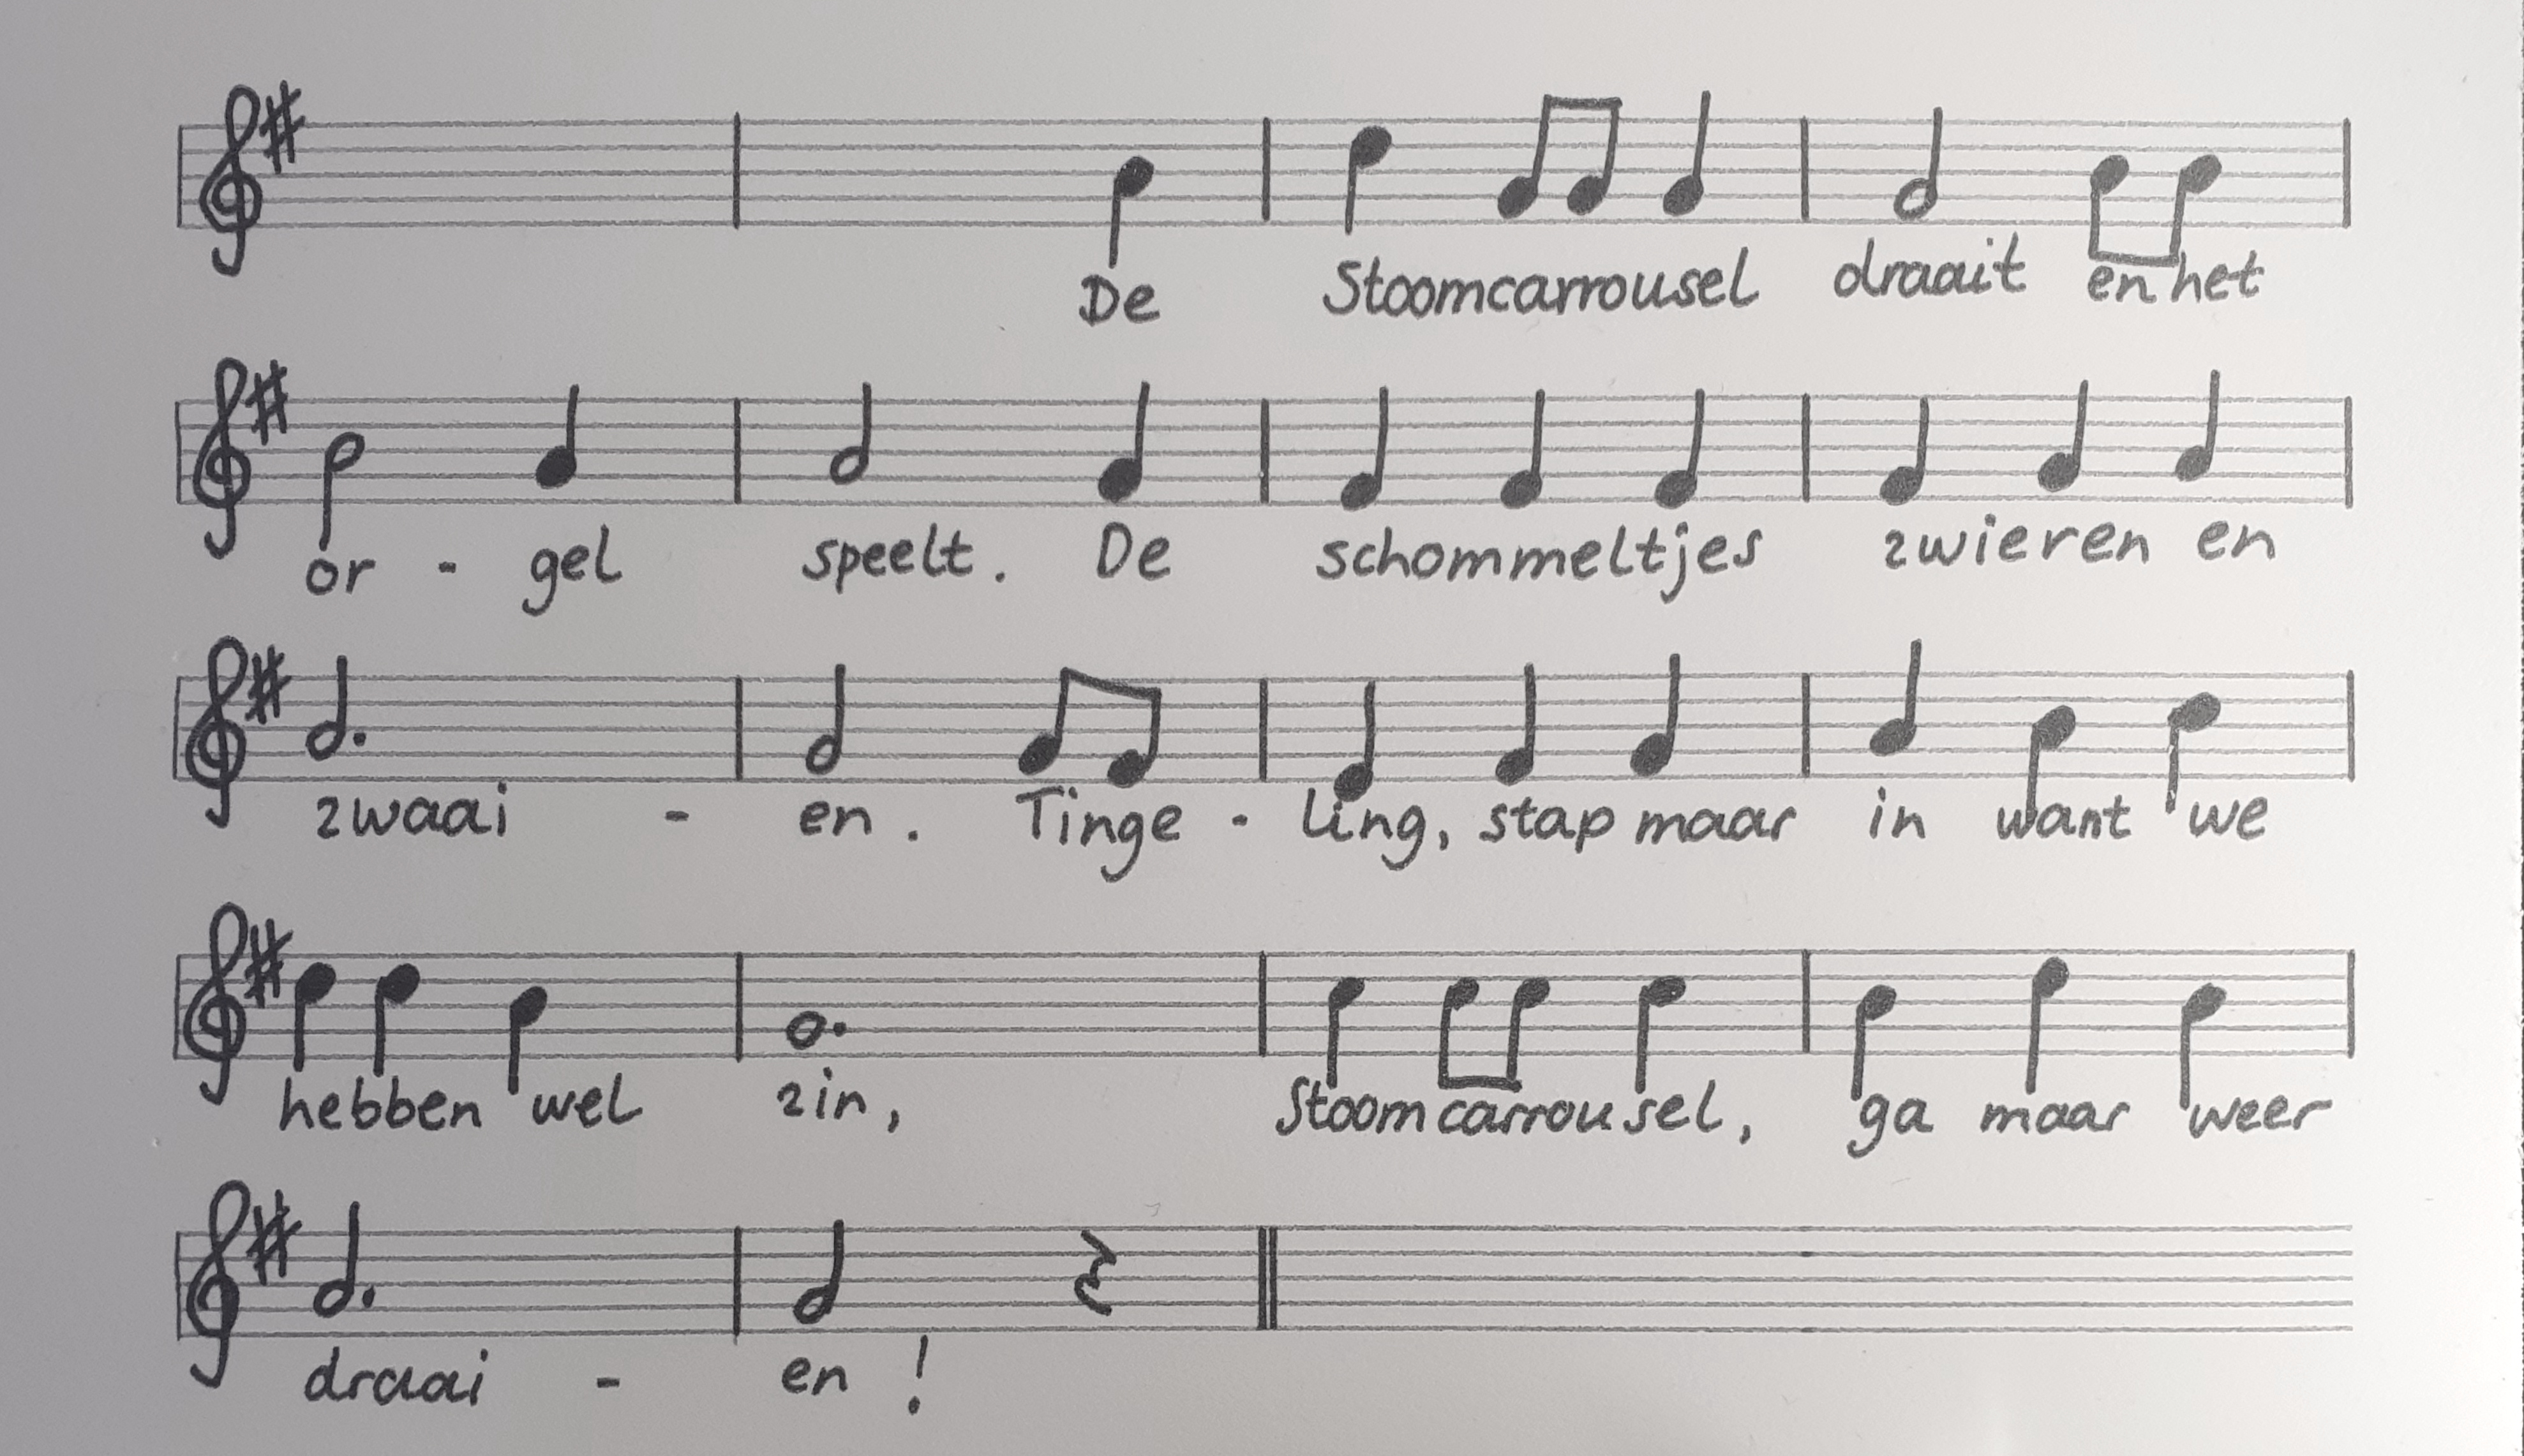 De Stoomcarrousel draait en het
or - gel speelt. De schommeltjes zwieren en
zwaai - en. Tinge - ling, stap maar in want we
hebben wel zin, Stoomcarrousel, ga maar weer
draai - en!